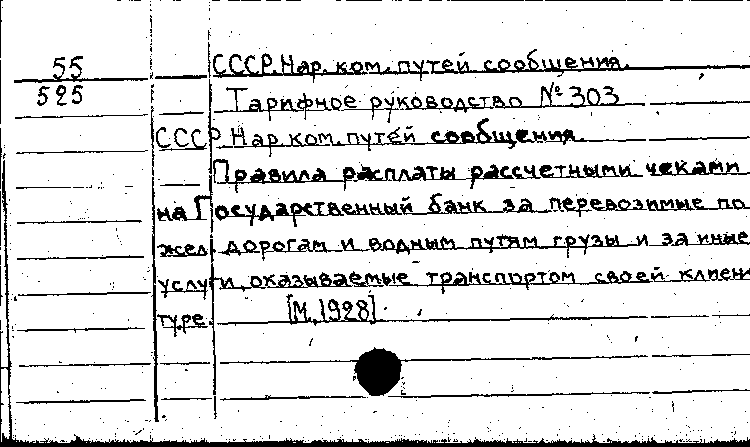 55 СССР. Нар. ком. путей сообщения.
525 Тарифное руководство № 303
СССР. Нар. ком. путей сообщения.
Правила расплаты рассчетными чеками
на Государственный банк за перевозимые по
жел. дорогам и водным путям грузы и за иные
услуги, оказываемые транспортом своей клиен
туре. [М., 1928].